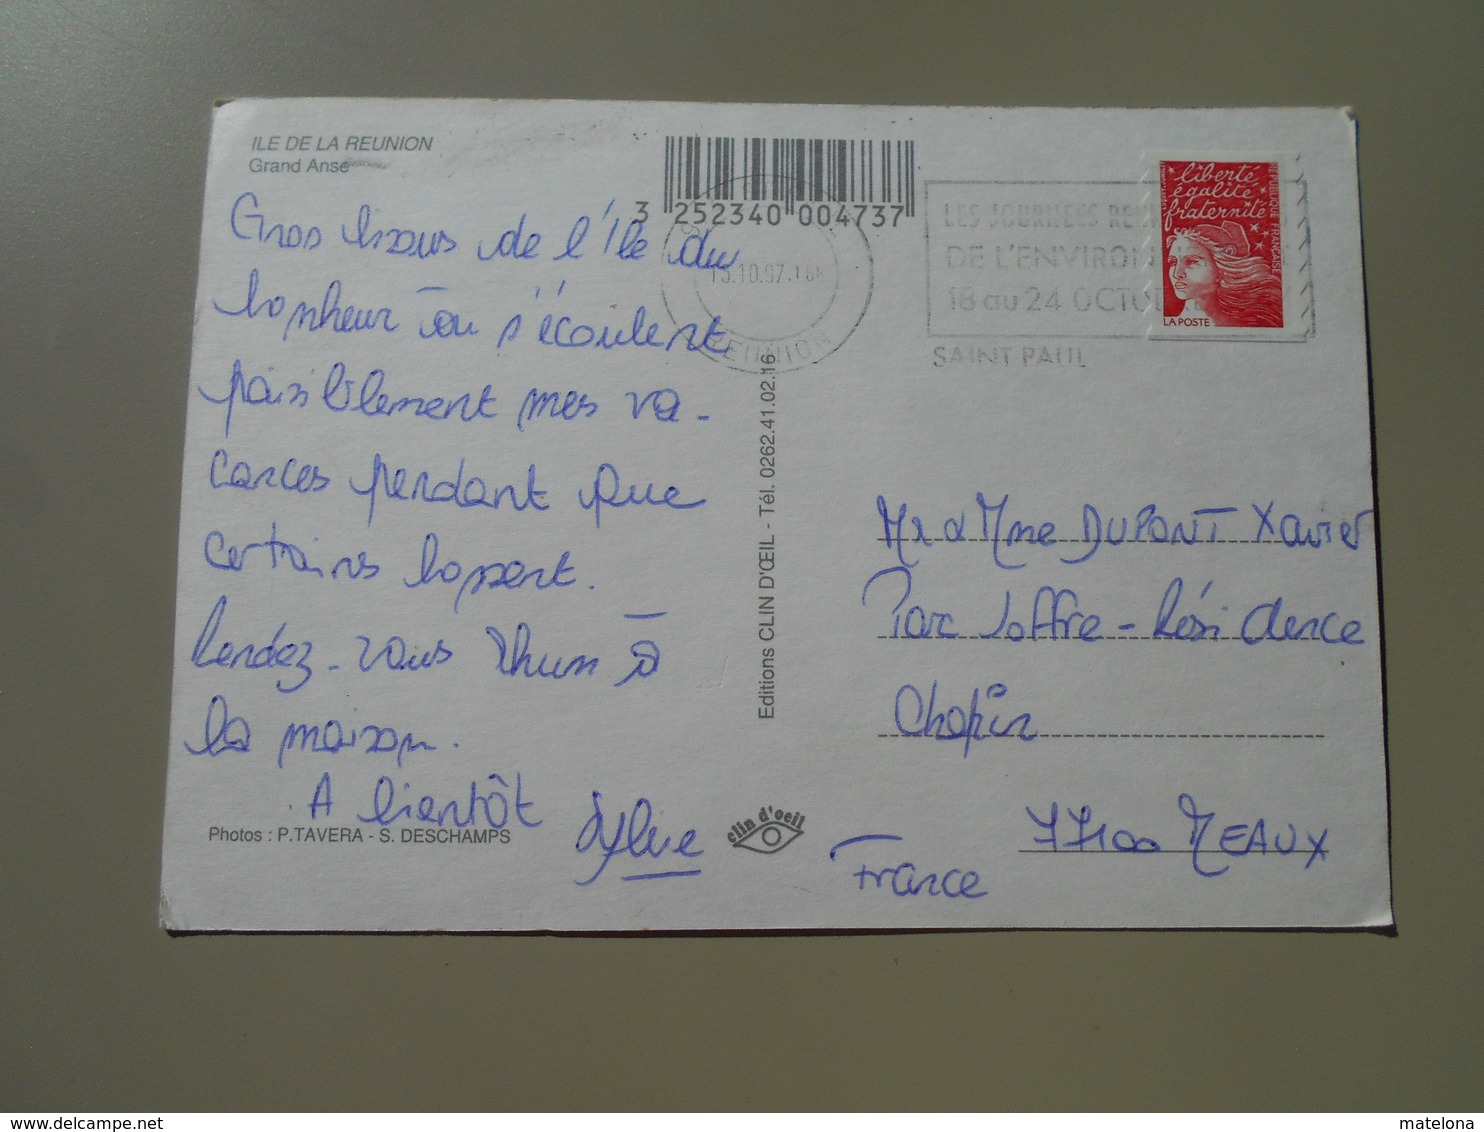 ILE DE LA REUNION
Grand Anse
Gros bisous de l'île du
bonheur où s'écoulent
paisiblement mes va-
cances pendant que
certains bossent.
Rendez-vous rhum à
la maison.
A bientôt
Sylvie
Photos : P.TAVERA - S. DESCHAMPS
3 252340 004737
Editions CLIN D'ŒIL - Tél. 0262.41.02.16
clin d'oeil
REUNION
LES JOURNEES
DE L'ENVIRON
18 au 24 OCTO
SAINT PAUL
liberté
égalité
fraternité
REPUBLIQUE FRANÇAISE
LA POSTE
Mr & Mme DUPONT Xavier
Parc Joffre - Rési dence
Chopin
77100 MEAUX
France
matelona